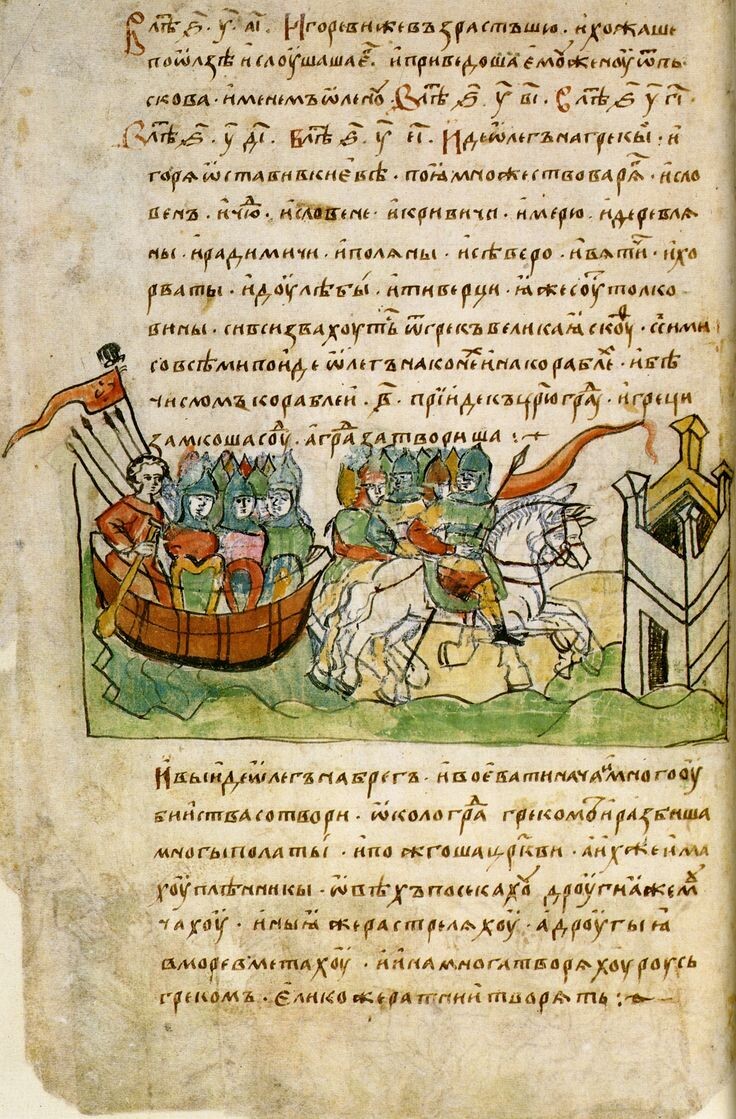 В лѣт҃ ҂ѕ҃ · у҃ · аı҃ · Игоревижевъзрастъшю · ихожаше
поѡлзѣ ислоушашаег҃ · иприведошаемоуженоуѿпь
скова · именемъѡленоу В лѣт҃ ҂ѕ҃ · у҃ вı҃ · В лѣт҃ ҂ѕ҃ у҃ гı҃ ·
В лѣт҃ ҂ѕ҃ · у҃ дı҃ · В лѣт҃ ҂ѕ҃ · у҃ еı҃ · Идеѡлегънагрекы · и
горяѡставивкиевѣ · поꙗмножествоваряг҃ · исло
венъ · ичюд҃ · исловене · икривичи · имерю · идеревля
ны · ирадимичи · иполяны · исѣверо · ивятичи · ихо
рваты · идоулѣбы · итиверци · ꙗжесоутьтолко
вины · сивсизвахоуть ѿгрекъвеликаꙗскоуф҃ · ссими
совсѣмипоидеѡлегънаконех҃ инакораблех҃ · ибѣ
числомъкораблеи · в҃ · прїидекъцр҃юградоу · игреци
замкошасоуд҃ · аград҃затвориша :~
Ивыидеѡлегънабрегъ · ивоеватинача имногооу
бииствасотвори · ѡкологрд҃а грекомъ иразбиша
многыполаты · ипожгошацр҃кви · аихжеима
хоуплѣнникы · ѡвѣхъпосекахоу дроугиꙗжемоу
чахоу · иныꙗжерастреляхоу · адроугыꙗ
вморевметахоу · иинамноготворяхоуроусь
грекомъ · еликожератниитворять :~